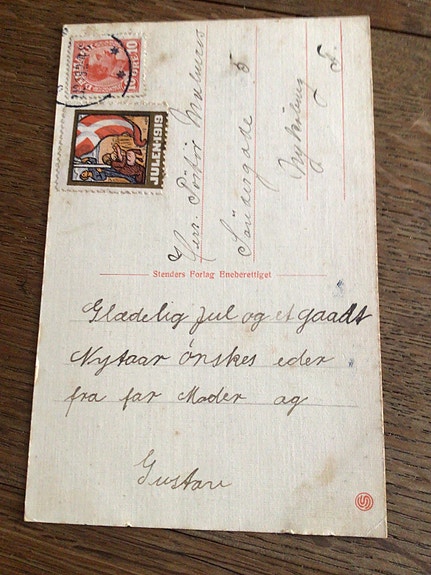 JULEN 1919
Herr. 
Söndergade 5
Nykøbing
F.
Stenders Forlag Eneberettiget
Glædelig Jul og et gaadt
Nytaar ønskes eder
fra far Moder og
Gustav